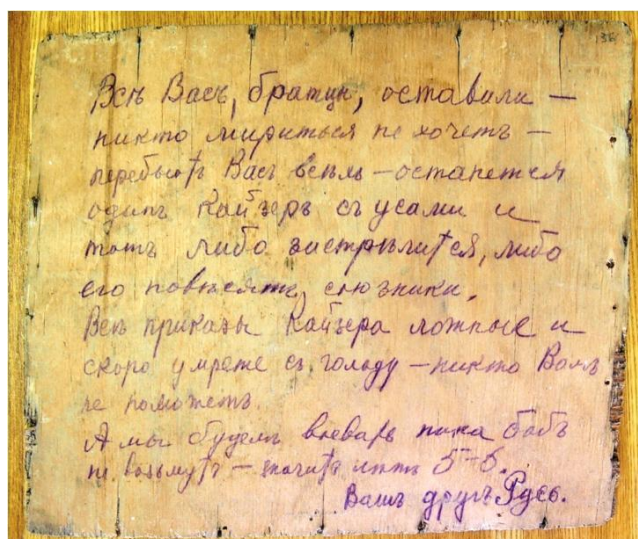 136
Всѣ Васъ, братцы, оставили —
никто мириться не хочетъ —
перебьютъ Васъ всѣхъ — останется
одинъ Кайзеръ съ усами и
тотъ либо застрѣлится, либо
его повѣсятъ союзники.
Всѣ приказы Кайзера ложные и
скоро умрете съ голоду — никто Вамъ
не поможетъ
А мы будемъ воевать пока бабъ
не возьмутъ — значитъ лѣтъ 5-6.
Вашъ другъ Русь.